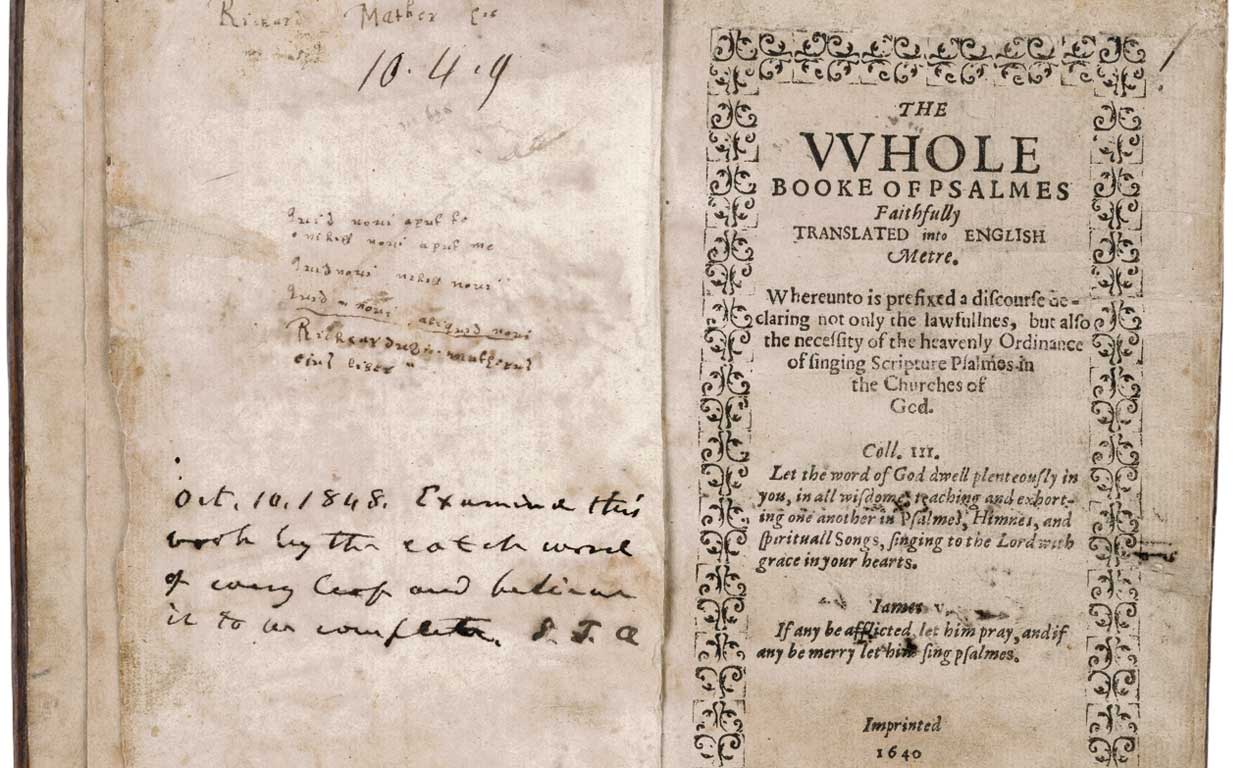 Richard Mather
10.4.9
Quid novi apud te
nihil novi apud me
Quid novi nihil novi
Quid novi aliquid novi
Richardus Matherus
eius liber
Oct. 10. 1848. Examined this
book by the catch word
of every leaf and believe
it to be complete. S. J. A
THE
VVHOLE
BOOKE OF PSALMES
Faithfully
TRANSLATED into ENGLISH
Metre.
Whereunto is prefixed a discourse de-
claring not only the lawfullnes, but also
the necessity of the heavenly Ordinance
of singing Scripture Psalmes in
the Churches of
God.
Coll. III.
Let the word of God dwell plenteously in
you, in all wisdome, teaching and exhort-
ing one another in Psalmes, Himnes, and
spirituall Songs, singing to the Lord with
grace in your hearts.
Iames v.
If any be afflicted, let him pray, and if
any be merry let him sing psalmes.
Imprinted
1640